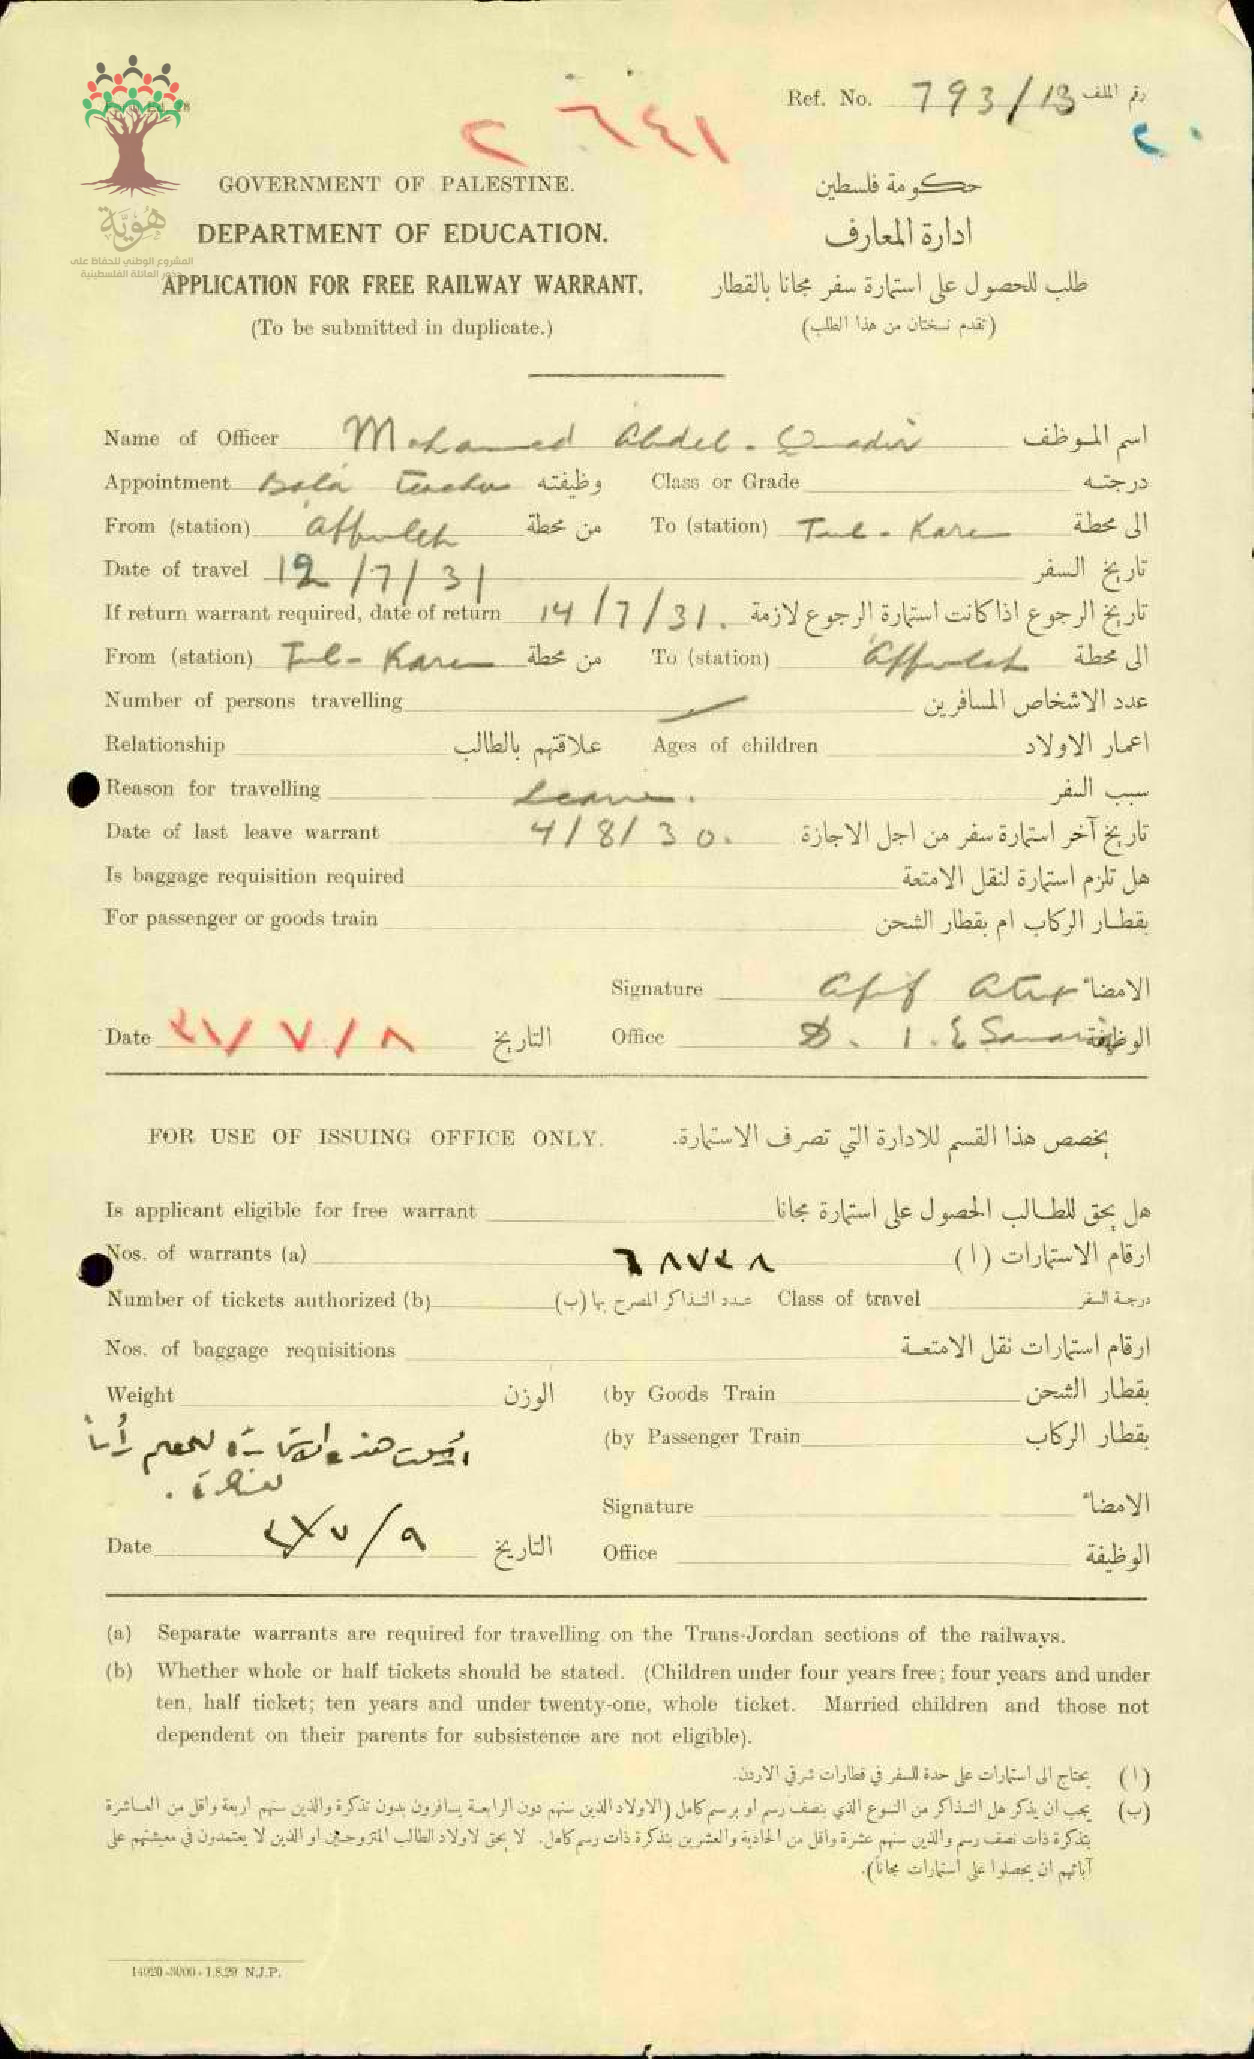 Ref. No. 793/13 رقم الملف
٢٠
٢٦٤١
هُوِيَّة
المشروع الوطني للحفاظ على
جذور العائلة الفلسطينية
GOVERNMENT OF PALESTINE. حكومة فلسطين
DEPARTMENT OF EDUCATION. ادارة المعارف
APPLICATION FOR FREE RAILWAY WARRANT. طلب للحصول على استمارة سفر مجانا بالقطار
(To be submitted in duplicate.) (تقدم نسختان من هذا الطلب)
Name of Officer Mohamed Abdel-Quadir اسم الموظف
Appointment Bala teacher وظيفته Class or Grade درجته
From (station) Affuleh من محطة To (station) Tul-Karem الى محطة
Date of travel 12/7/31 تاريخ السفر
If return warrant required, date of return 14/7/31. تاريخ الرجوع اذا كانت استمارة الرجوع لازمة
From (station) Tul-Karem من محطة To (station) Affuleh الى محطة
Number of persons travelling عدد الاشخاص المسافرين
Relationship علاقتهم بالطالب Ages of children اعمار الاولاد
Reason for travelling Leave. سبب السفر
Date of last leave warrant 4/8/30. تاريخ آخر استمارة سفر من اجل الاجازة
Is baggage requisition required هل تلزم استمارة لنقل الامتعة
For passenger or goods train بقطار الركاب ام بقطار الشحن
Signature Afif الامضاء
Date ٣١/٧/٨ التاريخ Office D. I. E Samaria الوظيفة
FOR USE OF ISSUING OFFICE ONLY. يخصص هذا القسم للادارة التي تصرف الاستمارة.
Is applicant eligible for free warrant هل يحق للطالب الحصول على استمارة مجانا
Nos. of warrants (a) ٦٨٧٣٨ ارقام الاستمارات (ا)
Number of tickets authorized (b) عدد التذاكر المصرح بها (ب) Class of travel درجة السفر
Nos. of baggage requisitions ارقام استمارات نقل الامتعة
Weight الوزن (by Goods Train بقطار الشحن
(by Passenger Train بقطار الركاب
هذه الاستمارة للمعلم رأساً
Signature الامضاء
Date ٣١/٧/٩ التاريخ Office الوظيفة
(a) Separate warrants are required for travelling on the Trans-Jordan sections of the railways.
(b) Whether whole or half tickets should be stated. (Children under four years free; four years and under
ten, half ticket; ten years and under twenty-one, whole ticket. Married children and those not
dependent on their parents for subsistence are not eligible).
(ا) يحتاج الى استمارات على حدة للسفر في قطارات شرقي الاردن.
(ب) يجب ان يذكر هل التذاكر من النوع الذي بنصف رسم او برسم كامل (الاولاد الذين سنهم دون الرابعة يسافرون بدون تذكرة والذين سنهم اربعة واقل من العاشرة
بتذكرة ذات نصف رسم والذين سنهم عشرة واقل من الحادية والعشرين بتذكرة ذات رسم كامل. لا يحق لاولاد الطالب المتزوجين او الذين لا يعتمدون في معيشتهم على
آبائهم ان يحصلوا على استمارات مجاناً).
14020-3000-1.8.29 N.J.P.